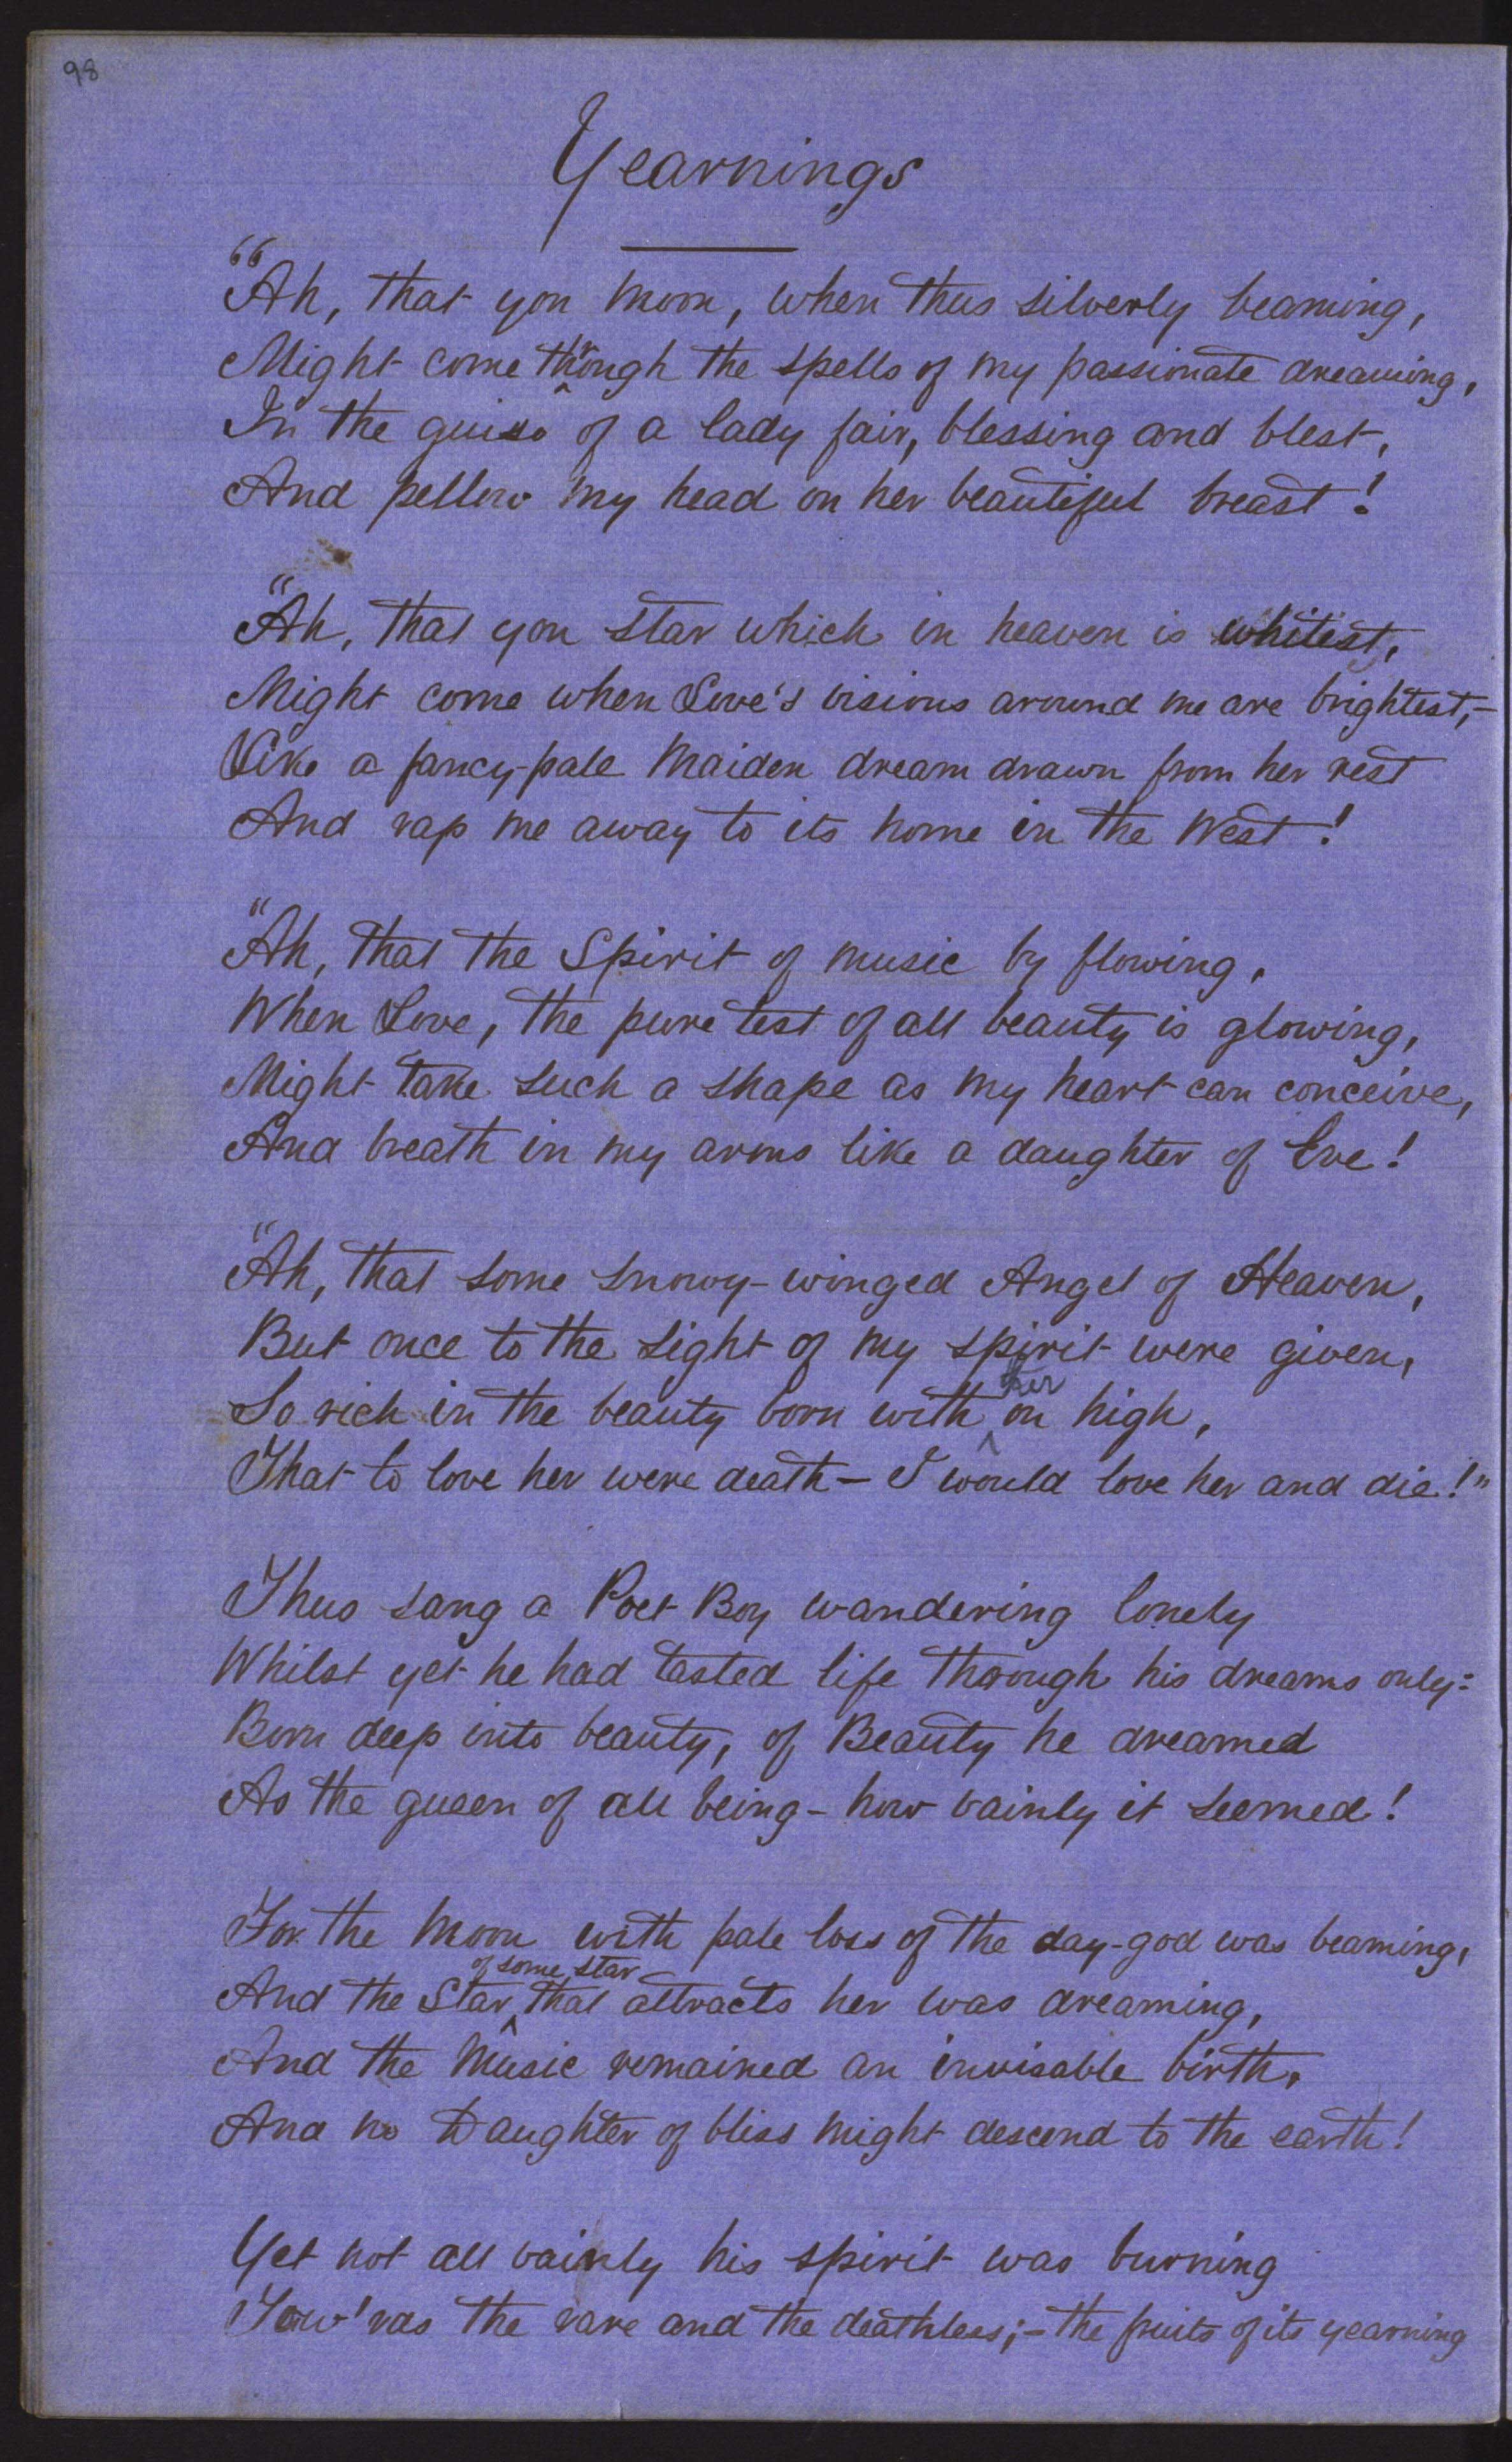 98
Yearnings
"Ah, that yon Moon, when thus silverly beaming,
Might come through the spells of my passionate dreaming,
In the guise of a lady fair, blessing and blest,
And pellow my head on her beautiful breast!
"Ah, that yon star which in heaven is whitest,
Might come when Love's visions around me are brightest,-
Like a fancy-pale Maiden dream drawn from her rest
And rap me away to its home in the West!
"Ah, that the Spirit of music by flowing,
When Love, the pure test of all beauty is glowing,
Might take such a shape as my heart can conceive,
And breath in my arms like a daughter of Eve!
"Ah, that some snowy-winged Angel of Heaven,
But once to the sight of my spirit were given,
So rich in the beauty born with her on high,
That to love her were death - I would love her and die!"
Thus sang a Poet Boy wandering lonely
Whilst yet he had tasted life through his dreams only:
Born deep into beauty, of Beauty he dreamed
As the queen of all being - how vainly it seemed!
For the Moon with pale loss of the day-god was beaming,
And the Star of some star that attracts her was dreaming,
And the Music remained an invisable birth,
And no Daughter of bliss might descend to the earth!
Yet not all vainly his spirit was burning
Tow'rds the rare and the deathless;- the fruits of its yearning